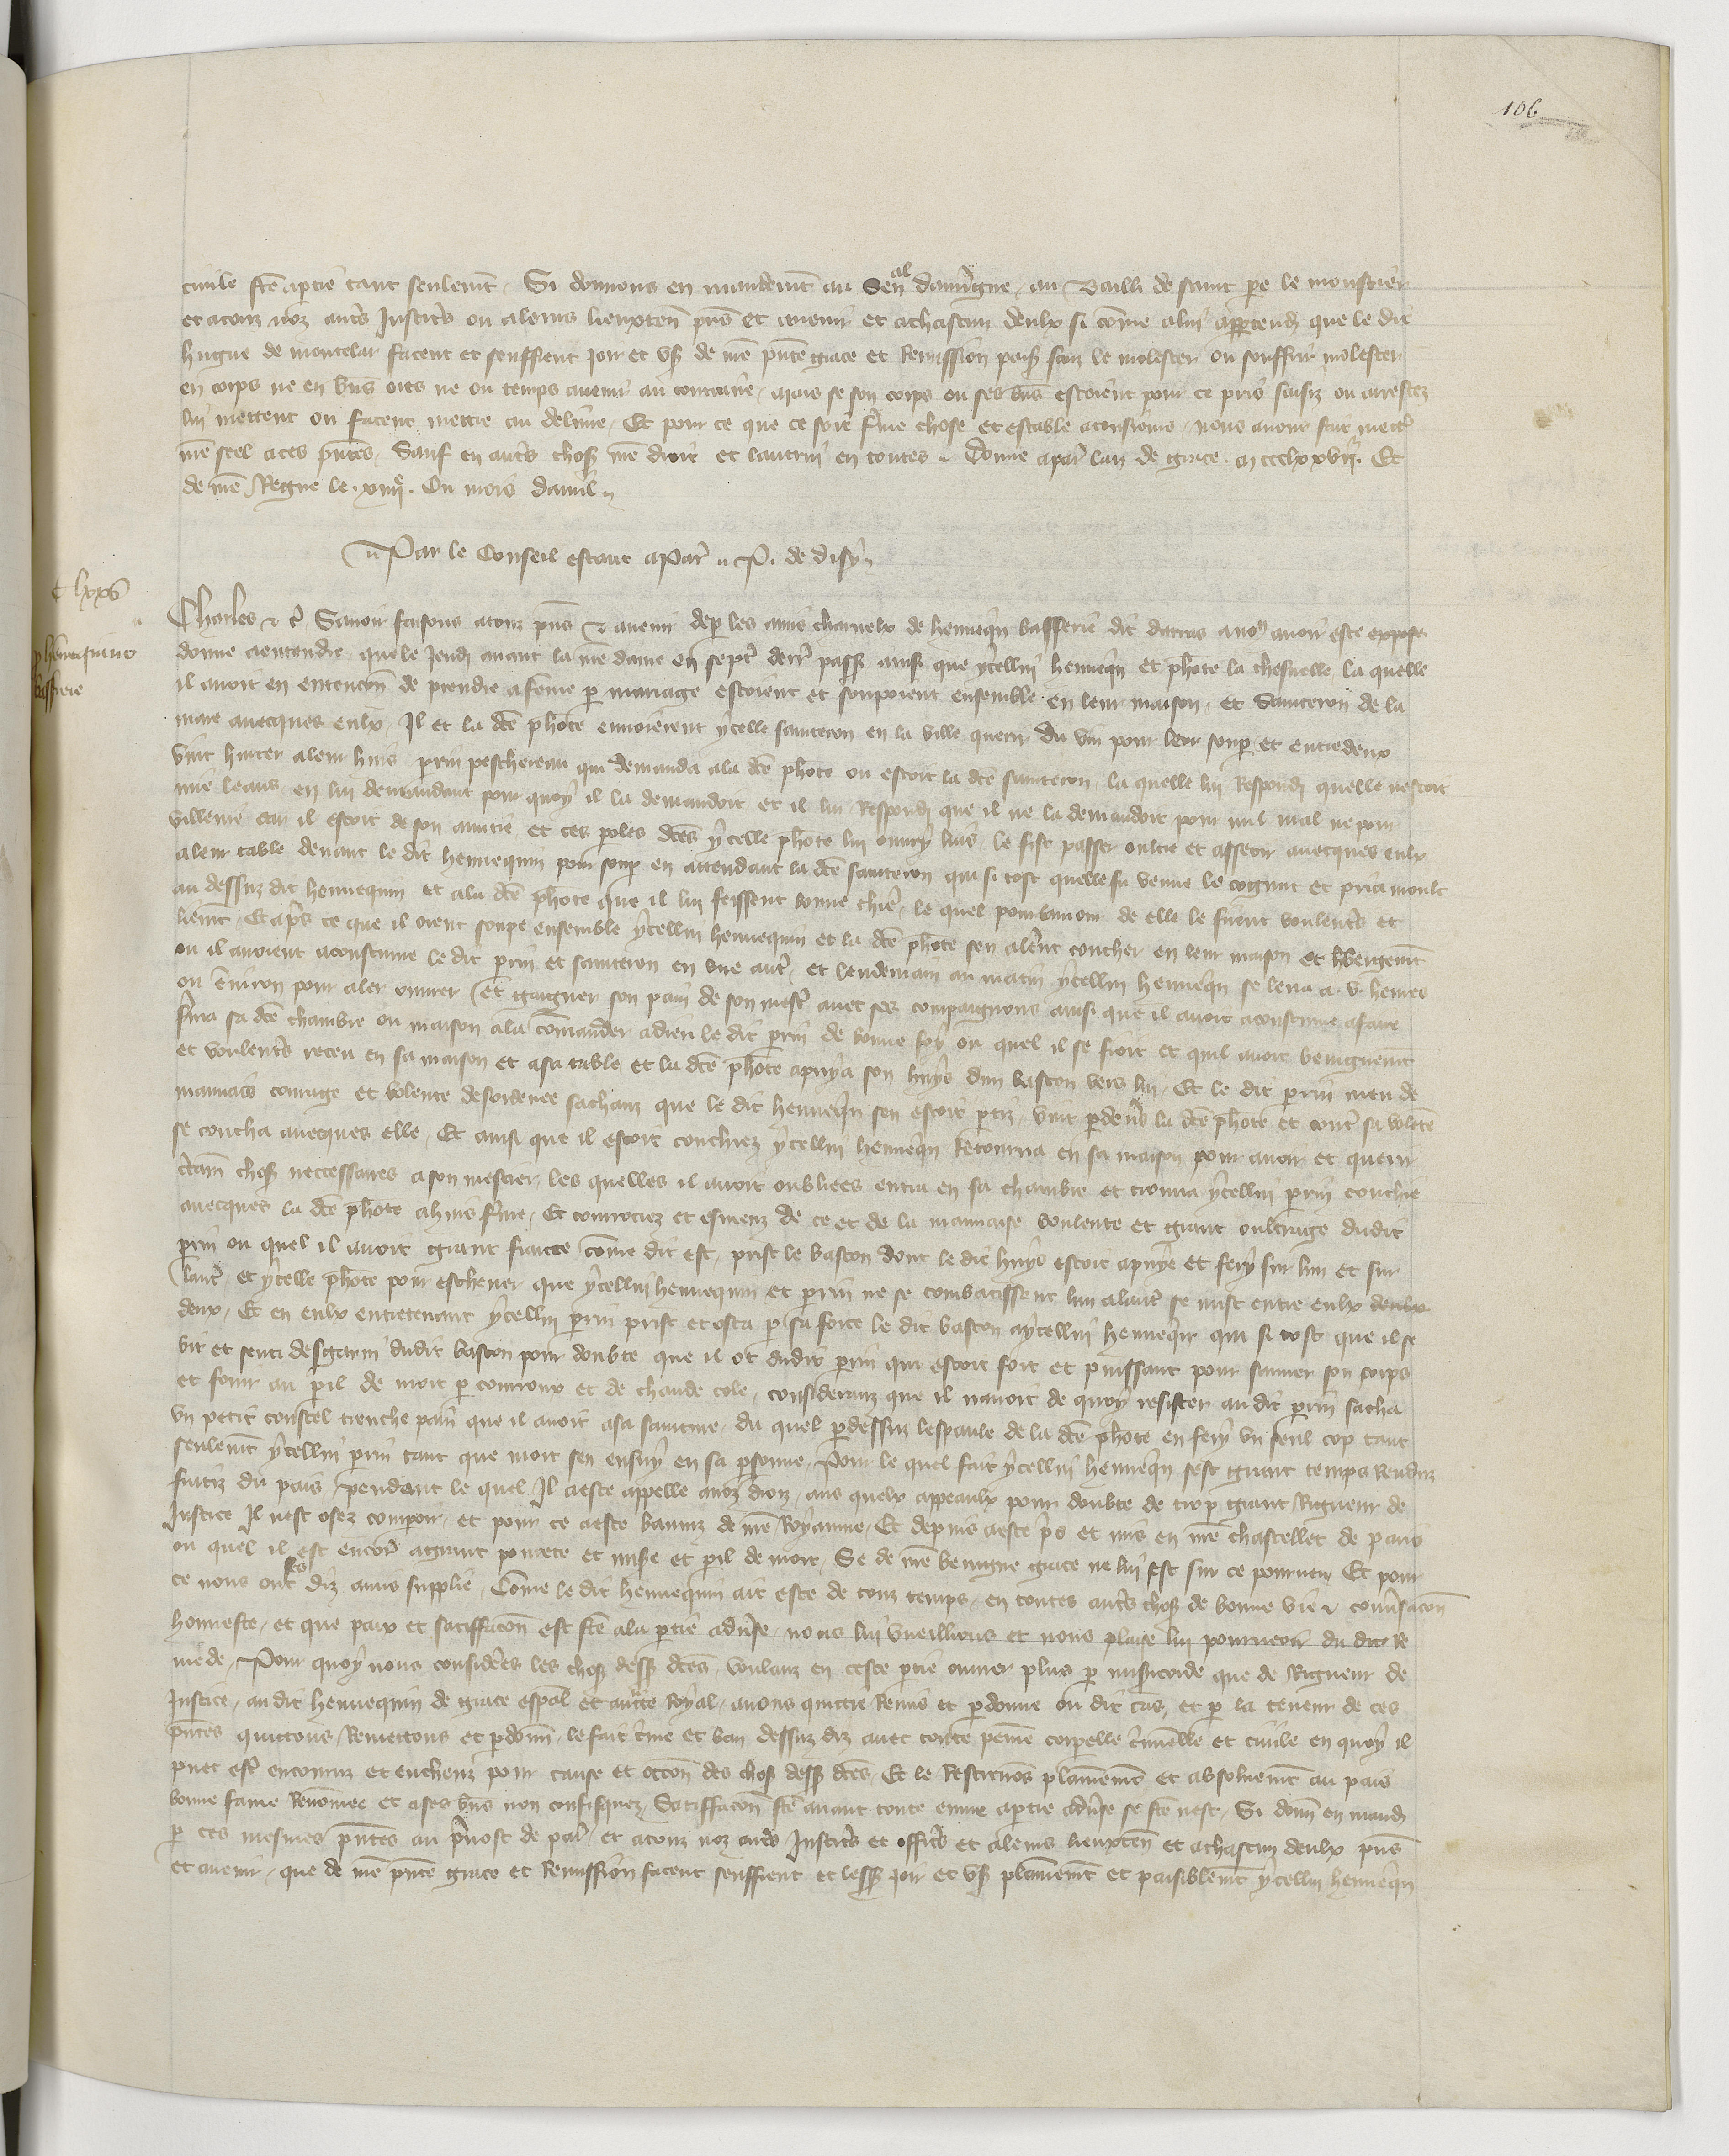 106
civile fcē a partie tant seulemt. Si donnons en mandemt au Senal dauvgne, au Bailli de saint pe le moustier
et a touz noz autrs Justicrs ou a leurs lieuxten pns et avenir et a chascun deulx si cōme a lui apptendͬ que le dit
hugue de montclar facent et seuffrent joir et us de nrē pnte grace et Remission pais sanz le molester ou souffrir molester
en corps ne en biens ores ne ou temps avenir au contraire, mais se son corps ou ses biens estoient pour ce pris saisiz ou arrestez
lui mettent ou facent mettre au delivre, Et pour ce que ce soit fme chose et estable a tousjours, nous avons fait mectr
nrē seel a ces pntes, Sauf en autrs chos nrē droit et lautrui en toutes. Donne a par lan de grace m ccclxxvij. Et
de nrē Regne le xiiij. Ou mois davril
Par le Conseil estant a Par. P. de disy
c lxxv
p hennequino
bassiere
Charles &c Savoir faisons a touz pns & avenir de p les amis charnelx de henneqn basserie dit darras a nous avoir este expose
donne a entendre que le Jeudi avant la nre dame en septr derr passe ainsi que ycellui henneqn et phote la chesnelle la quelle
il avoit en entencōn de prendre a fēme p mariage estoient et soupoient ensemble en leur maison, et Santeron de la
mare avecques eulx, Il et la dcē phote envoierent ycelle santeron en la ville querir du vin pour leur soup et entredeux
vint hurter a leur huis prin peschereau qui demanda a la dcē phote ou estoit la dcē santeron, la quelle lui Respondͬ quelle nestoit
mie leans, en lui demandant pour quoy il la demandoit et il lui Respondͬ que il ne la demandoit pour nul mal ne pour
villenie car il estoit de son amitie et ces poles dcēs ycelle phote lui ouvry luis, le fist passer oultre et asseoir avecques eulx
a leur table devant le dit hennequin pour soup en attendant la dcē santeron qui si tost quelle fu venue le cognut et pria moult
au dessuz dit hennequin et a la dcē phote que il lui feissent bonne chier, le quel pour lamour de elle le firent voulentrs et
liemt, Et aprs ce que il orent soupe ensemble ycellui hennequin et la dcē phote sen alerent coucher en leur maison et hbergemt
ou il avoient acoustume le dit prin et santeron en une autr, et lendemain au matin ycellui henneqn se leva a v. heures
ou environ pour aler ouvrer et gaigner son pain de son mestr avec ses compaignons ainsi que il avoit acoustume a faire
ferma sa dcē chambre ou maison a la cōmander a dieu le dit prin de bonne foy ou quel il se fioit et quil avoit benignemt
et voulentrs receu en sa maison et a sa table et la dcē phote apuya son huys dun baston vers lui, Et le dit prin meu de
mauvais courage et volente desordenee sachanz que le dit henneqn sen estoit ptiz, vint p devs la dcē phote et contr sa volente
se coucha avecques elle, Et ainsi que il estoit couchiez ycellui henneqn Retourna en sa maison pour avoir et querir
ctain chos neccessaires a son mestier, les quelles il avoit oubliees entra en sa chambre et trouva ycellui prin couchie
avecques la dcē phote a huis fme, Et courrociez et esmeuz de ce et de la mauvaise voulente et grant oultrage dudit
prin ou quel il avoit grant fiance cōme dit est, prist le baston dont le dit huys estoit apuye et fery sur lun et sur
lautr, et ycelle phote pour eschever que ycellui hennequin et prin ne se combatissent lun a lautr se mist entre eulx deulx
deux, Et en eulx entretenant ycellui prin prist et osta p sa force le dit baston a ycellui henneqn qui si tost que il se
vit et senti desgarni dudit baston pour doubte que il ot dudit prin qui estoit fort et puissant pour sauver son corps
et fouir au pil de mort p courroux et de chaude cole, consideranz que il navoit de quoy resister au dit prin sacha
un petit coustel trenche pain que il avoit a sa sainture, du quel p dessuz lespaule de la dcē phote en fery un seul cop tant
seulemt ycellui prin tant que mort sen ensuy en sa psonne, Pour le quel fait ycellui henneqn sest grant temps Renduz
fuitiz du pais pendant le quel Il a este appelle a noz droiz, aus quelx appeaulx pour doubte de trop grant Rigueur de
Justice Il nest osez comparoir, et pour ce a este banniz de nrē Royaume, Et depuis a este prs et mis en nrē chastellet de paris
ou quel il est encore a grant povrete et misere et pil de mort, Se de nrē benigne grace ne lui est sur ce pourveu, Et pour
ce nous ont les diz amis supplie, Cōme le dit hennequin ait este de touz temps, en toutes autrs chos de bonne vie & convsacōn
honneste, et que paix et satiffacōn est fcē a la ptie advse, nous lui vueillions et nous plaise lui pourveoir du dit Re
mede, Pour quoy nous considerēs les chos dess dcēs, voulanz en ceste ptie ouvrer plus p misicorde que de Rigueur de
Justice, au dit hennequin de grace espal et aucte Royal, avons quitte Remis et pdonne ou dit cas, et p la teneur de ces
pntes quittons, Remettons et pdonn, le fait crime et ban dessuz diz avec toute peine corporelle criminelle et civile en quoy il
puet estr encouruz et encheuz pour cause et occōn des chos dess dcēs, Et le Restituons plainemt et absoluemt au pais
bonne fame Renōmee et a ses biens non confisquez, Satiffacōn fcē avant toute euvre a ptie advse se fcē nest, Si donn en mandͬ
p ces mesmes pntes au prevost de par, et a touz noz autrs Justicrs et officrs et a leurs lieuxten et a chascun deulx pns
et avenir, que de nrē pnte grace et Remission facent seuffrent et less joir et us plainemt et paisiblemt ycellui henneqn